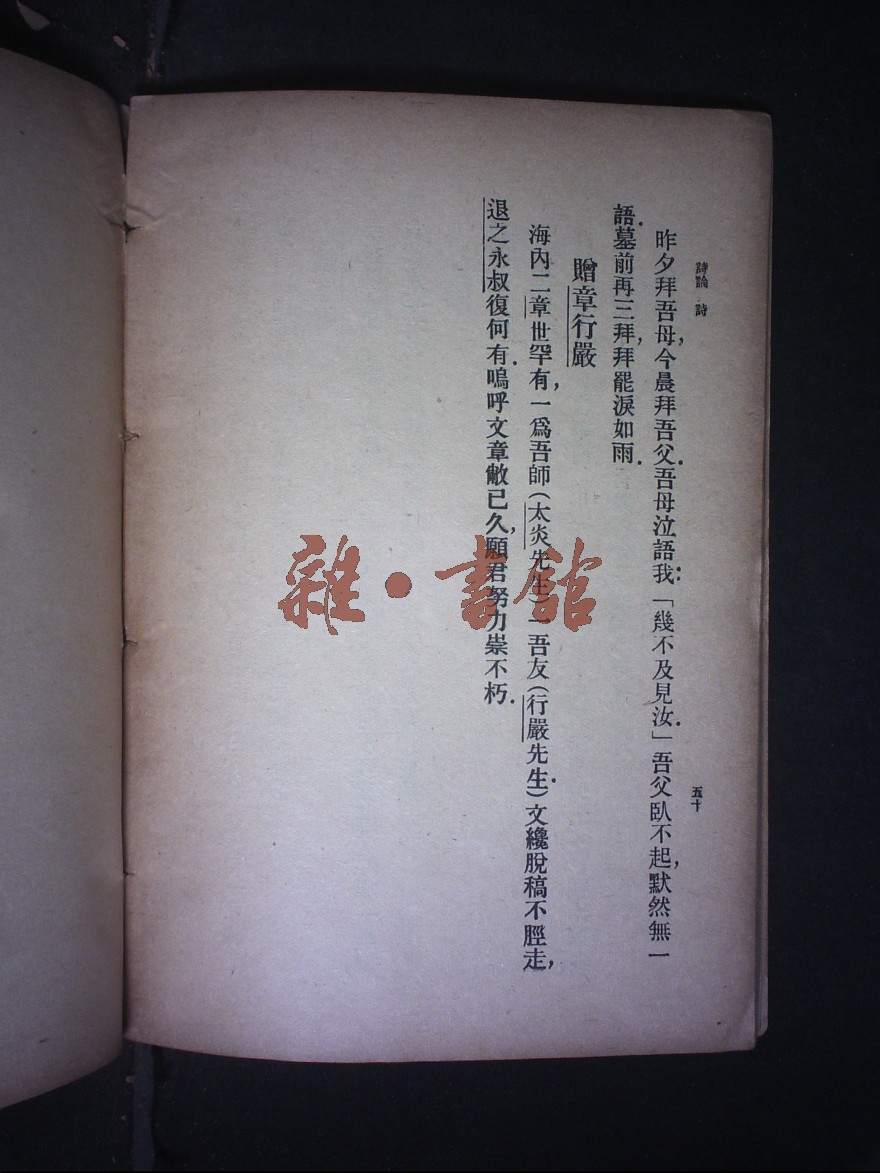 詩論　詩
五十
昨夕拜吾母,今晨拜吾父.吾母泣語我:「幾不及見汝.」吾父臥不起,默然無一
語.墓前再三拜,拜罷淚如雨.
贈章行嚴
海內二章世罕有,一爲吾師(太炎先生)一吾友(行嚴先生.)文纔脫稿不脛走,
退之永叔復何有.嗚呼文章敝已久,願君努力崇不朽.
雜·書館